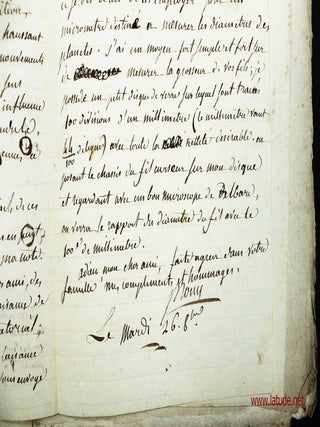 micromètre destiné a mesurer les diamètres des
planètes. J'ai un moyen fort simple et fort sur
de mesurer la grosseur de vos fils; je
possede un petit disque de verre sur lequel sont tracés
100 divisions d'un millimetre (le millimetre vaut
44/100 de ligne) avec toute la netteté désirable. en
posant le chassis du fil curseur sur mon disque
et regardant avec un bon microscope de Delbare,
on verra le rapport du diametre du fil avec le
100e de millimetre.
adieu mon cher ami, faites agréer dans votre
famille mes compliments et hommages,
Prony
Le Mardi 26. 8bre
haussant
mouvements
sens
influence
ami, des
naissance de
naissance
vous envoye
www.latude.net